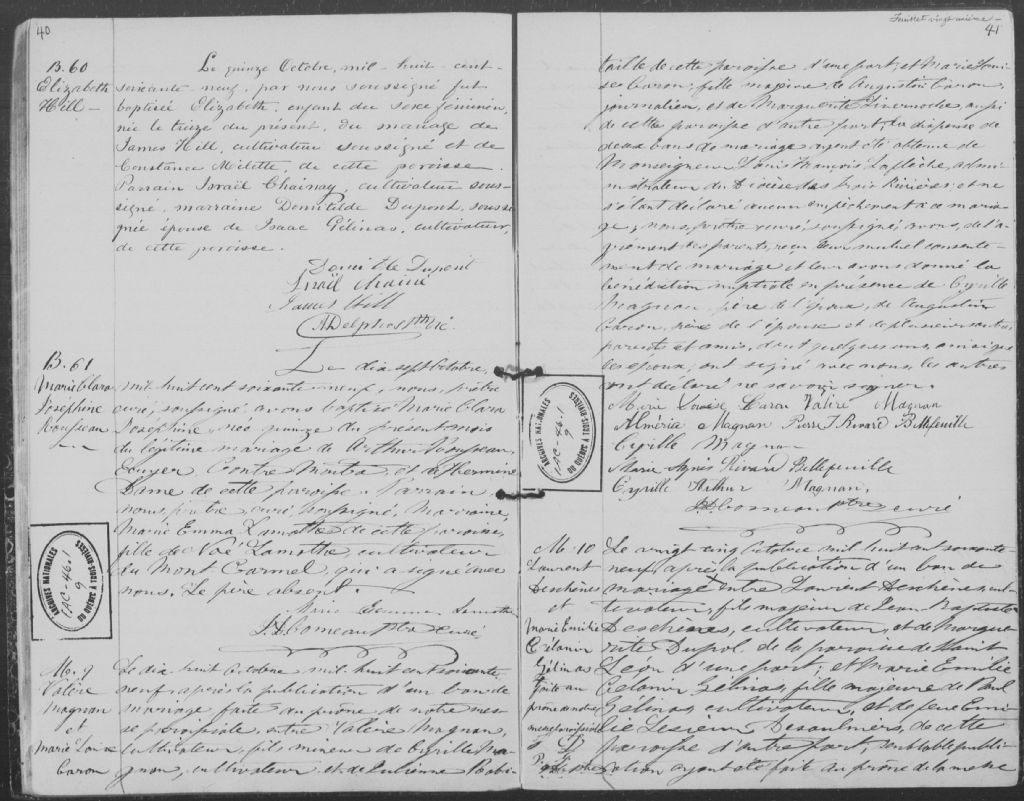 40
B. 60
Elizabeth
Hill
Le quinze Octobre, mil-huit-cent-
soixante-neuf, par nous soussigné fut
baptisée Elizabeth, enfant du sexe féminin,
née le treize du présent, du mariage de
James Hill, cultivateur soussigné et de
Constance Milette, de cette paroisse.
Parrain Israël Chainay, cultivateur sous-
signé, marraine Domitilde Dupont, sous
gnée épouse de Isaac Gélinas, cultivateur
de cette paroisse.
Domitilde Dupont
Israël
James Hill
B. 61
Marie Clara
Josephine
Rousseau
Le dix sept Octobre,
mil huit cent soixante neuf, nous, prêtre
curé, soussigné avons baptizé Marie Clara
Josephine, née quinze du present mois
du légitime mariage de Arthur Rousseau,
Ecuyer Contre Maitre, et d'Hermine
Dame de cette paroisse. Parrain
nous, prêtre curé, soussigné, Marraine,
Marie Emma Lamothe de cette paroisse,
fille de Noé Lamothe, cultivateur
du Mont Carmel, qui a signé avec
nous. Le père absent.
J. H. Comeau Ptre curé
M. 9
Valère
Magnan
et
Marie Louise
Caron
Le dix huit Octobre mil huit cent soixante
neuf, après la publication d'un ban de
mariage faite au prône de notre mes
se paroissiale, entre Valère Magnan,
cultivateur, fils mineur de Cyrille Ma-
gnan, cultivateur et de Julienne Robi-
Feuillet vingt unième
41
taille de cette paroisse d'une part, et Marie Loui-
se Caron, fille majeure de Augustin Caron,
journalier, et de Marguerite Livernoche, aussi
de cette paroisse d'autre part, la dispense de
deux bans de mariage ayant été obtenue de
Monseigneur Louis François Laflèche, admi-
nistrateur du Diocèse des Trois Rivières et ne
s'étant déclaré aucun empêchement à ce maria-
ge, nous, prêtre curé, soussigné, avons, de l'a-
grément des parents, reçu leur mutuel consente-
ment de mariage et leur avons donné la
bénédiction nuptiale en présence de Cyrille
Magnan père de l'époux, de Augustin
Caron, père de l'épouse et de plusieurs autres
parents et amis, dont quelques uns, ainsi que
les époux, ont signé avec nous, les autres
ont déclaré ne savoir signer.
Marie Louise Caron Valère Magnan
Alméria Magnan Pierre J. Rivard Bellefeuille
Cyrille Magnan
Marie Agnès Rivard Bellefeuille
Cyrille Arthur Magnan,
J. H. Comeau ptre curé
M. 10
Laurent
Deschènes
et
Marie Emilie
Célanir
Gélinas
Le vingt cinq Octobre mil huit cent soixante
neuf, après la publication d'un ban de
mariage entre Laurent Deschènes, cul-
tivateur, fils majeur de Jean Baptiste
Deschènes, cultivateur, et de Margue-
rite Dupol, de la paroisse de Saint
Léon d'une part; et Marie Emilie
Célanir Gélinas, fille majeure de Paul
Gélinas, cultivateur, et de feue Emi-
lie Lesieur Desaulniers, de cette
paroisse d'autre part, semblable publi-
cation ayant été faite au prône de la messe
ARCHIVES NATIONALES
DU QUÉBEC À TROIS-RIVIÈRES
ARCHIVES NATIONALES
DU QUÉBEC À TROIS-RIVIÈRES